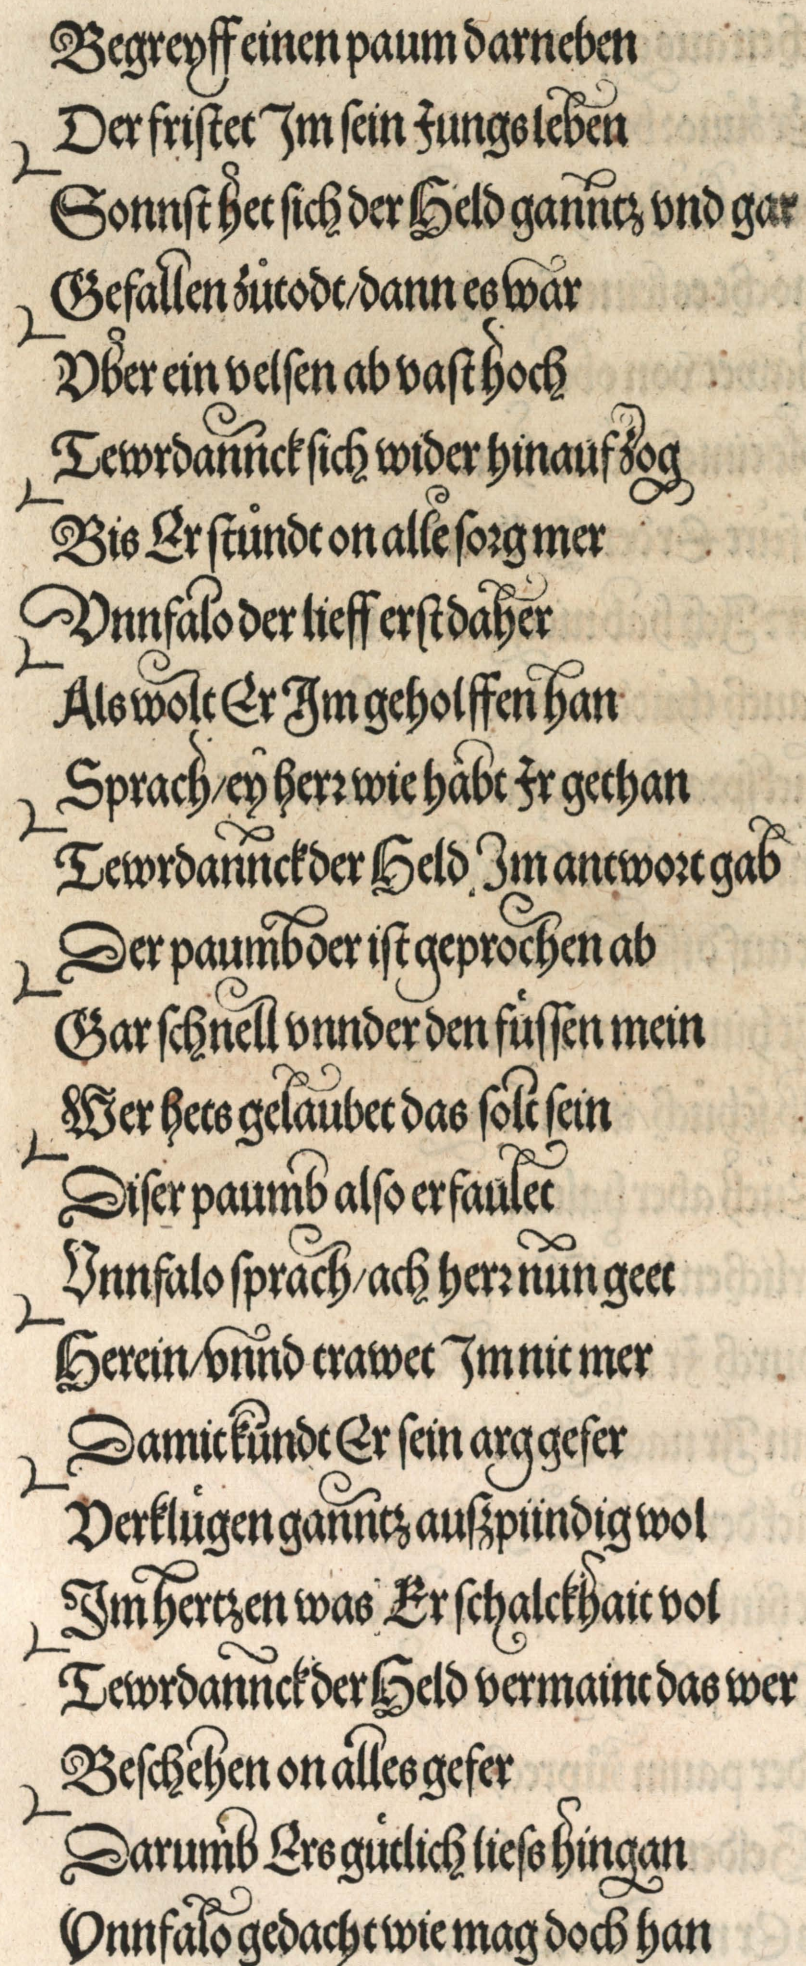 Begreyff einen paum darneben
Der fristet Im sein Jungs leben
Sonnst het sich der Held ganntz vnd gar
Gefallen zůtodt/dann es war
Vber ein velsen ab vast hoch
Tewrdannck sich wider hinauf zog
Bis Er stůndt on alle sorg mer
Vnnfalo der lieff erst daher
Als wolt Er Im geholffen han
Sprach/ey herr wie habt Ir gethan
Tewrdannck der Held Im antwort gab
Der paumb der ist geprochen ab
Gar schnell vnnder den fůssen mein
Wer hets gelaubet das solt sein
Diser paumb also erfaulet
Vnnfalo sprach/ach herr nun geet
Herein/vnnd trawet Im nit mer
Damit kundt Er sein arg gefer
Verklůgen ganntz außpündig wol
Im hertzen was Er schalckhait vol
Tewrdannck der Held vermaint das wer
Beschehen on alles gefer
Darumb Ers gůtlich liess hingan
Vnnfalo gedacht wie mag doch han